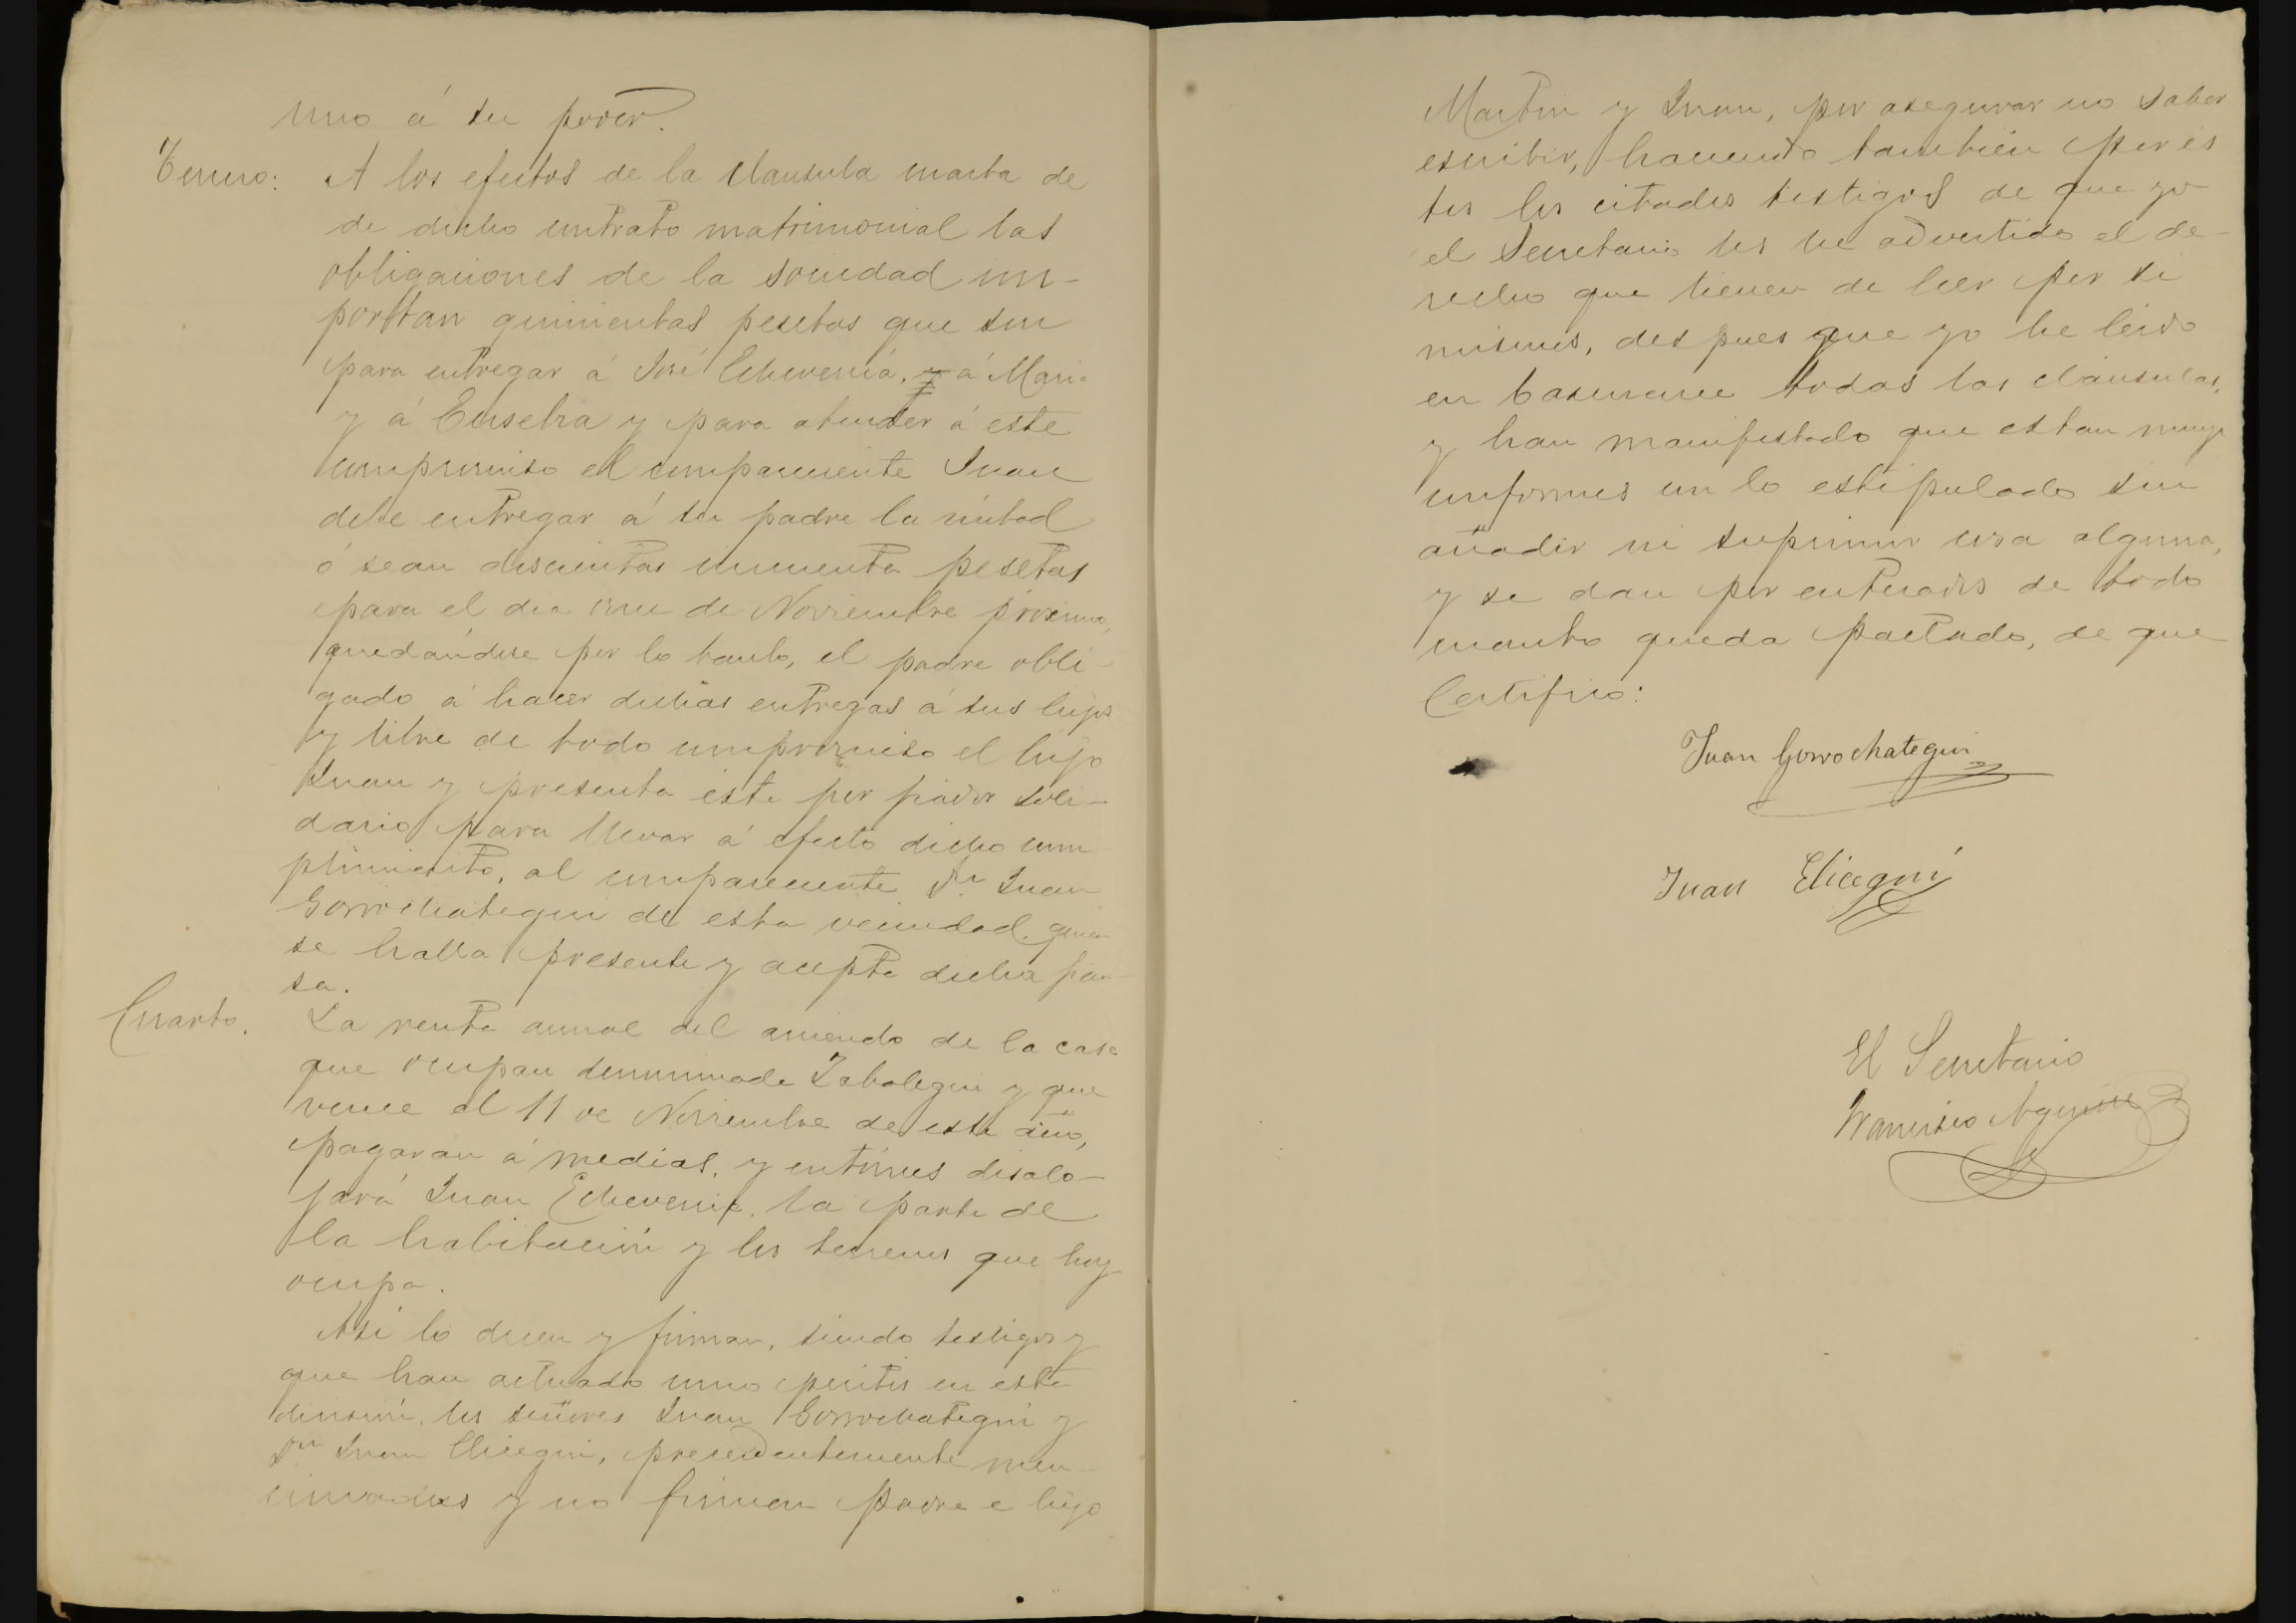 uno á su poder.
Tercero: A los efectos de la clausula cuarta de
de dicho contrato matrimonial las
obligaciones de la sociedad im-
portan quinientas pesetas que son
para entregar á José Echeverria, y á Maria
y á Eusebia y para atender á este
compromiso el compareciente Juan
debe entregar á su padre la mitad
ó sean doscientas cincuenta pesetas
para el dia once de Noviembre próximo,
quedándose por lo tanto, el padre obli-
gado á hacer dichas entregas á sus hijos
y libre de todo compromiso el hijo
Juan y presenta éste por fiador soli-
dario para llevar á efecto dicho cum-
plimiento, al compareciente Dn Juan
Gorrochategui de esta vecindad, quien
se halla presente y acepta dicha fian-
sa.
Cuarto. La renta annal del arriendo de la casa
que ocupan denominada Zabalegui y que
vence el 11 de Noviembre de este año,
pagarán á medias, y entónces desalo-
jará Juan Echeverria, la parte de
la habitación y los terrenos que hoy
ocupa.
Así lo dicen y firman, siendo testigos y
que han actuado como peritos en esta
división, los señores Juan Gorrochategui y
Dn Juan Elicegui, precedentemente men-
cionados y no firman padre e hijo
Martin y Juan, por asegurar no saber
escribir, haciendo también por és
tos los citados testigos de que yo
el Secretario les he advertido el de-
recho que tienen de leer por si
mismos, despues que yo he leido
en bascuence todas las cláusulas,
y han manifestado que estan muy
conformes con lo estipulado sin
añadir ni suprimir cosa alguna,
y se dan por enterados de todo
cuanto queda pactado, de que
Certifico:
Juan Gorrochategui
Juan Elicegui
El Secretario
Francisco Aguirre